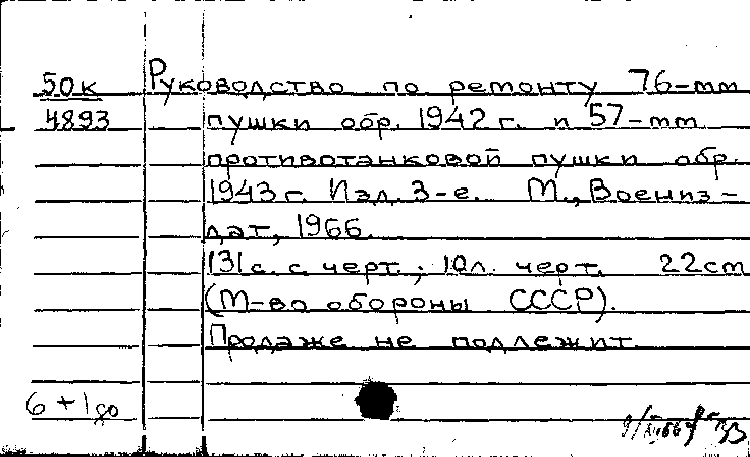 50к Руководство по ремонту 76-мм
4893 пушки обр. 1942 г. и 57-мм
противотанковой пушки обр.
1943 г. Изд. 3-е. М., Воениз-
дат, 1966.
131 с. с черт.; 10 л. черт. 22 см
(М-во обороны СССР).
Продаже не подлежит.
6+1 до